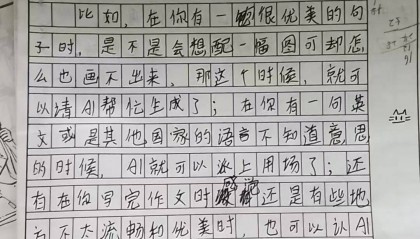 比如，在你有一个很优美的句
子时，是不是会想配一幅图可却怎
么也画不出来，那这个时候，就可
以请AI帮忙生成了；在你有一句英
文或是其他国家的语言不知道意思
的时候，AI就可以派上用场了；还
有在你写完作文时感觉还是有些地
方不太流畅和优美时，也可以认AI